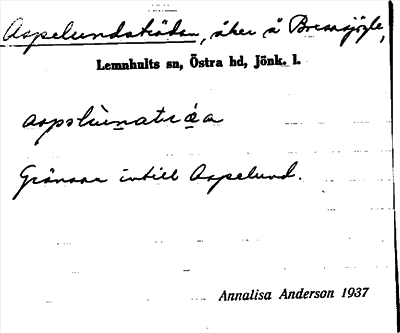 Aspelundsträdan, åker å Bressjöyle,
Lemnhults sn, Östra hd, Jönk. l.
Gränsar intill Aspelund.
Annalisa Anderson 1937